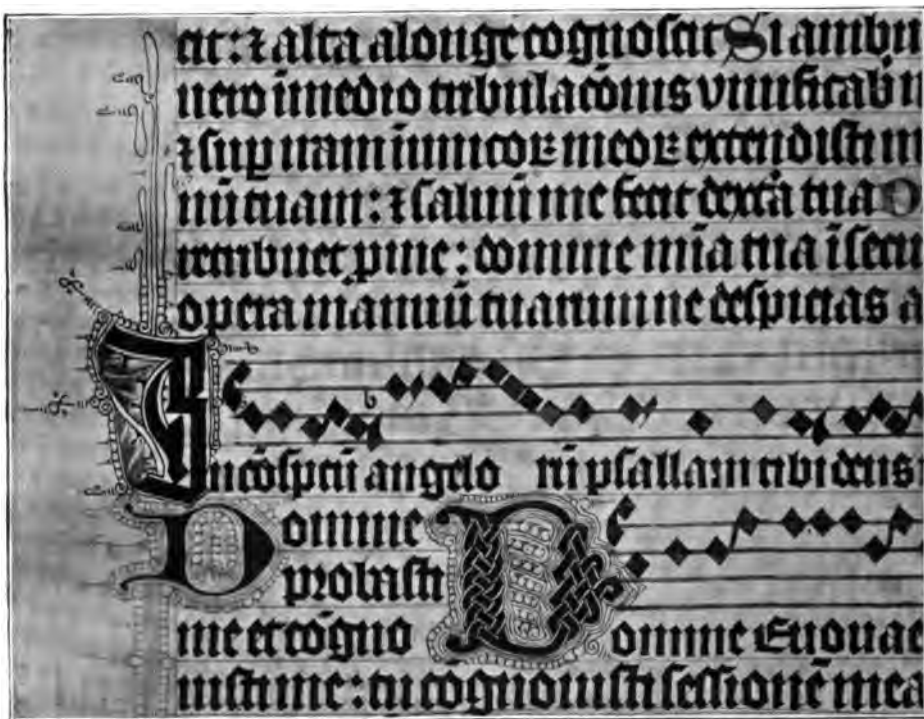 cit: ⁊ alta alonge cognoscit Si ambu
uero ī medio tribulacōnis viuificabi
⁊ sup iram inimicoꝝ meoꝝ extendisti m
nū tuam: ⁊ saluū me fecit dext̄a tua D
retribuet pme: domine mīa tua ī secu
opera manuū tuarum ne despicias a
In cōspcū angelo rū psallam tibi deus
Domine
probasti
me et cōgno Domine Euoua
uisti me: tu cognouisti sessionē mea